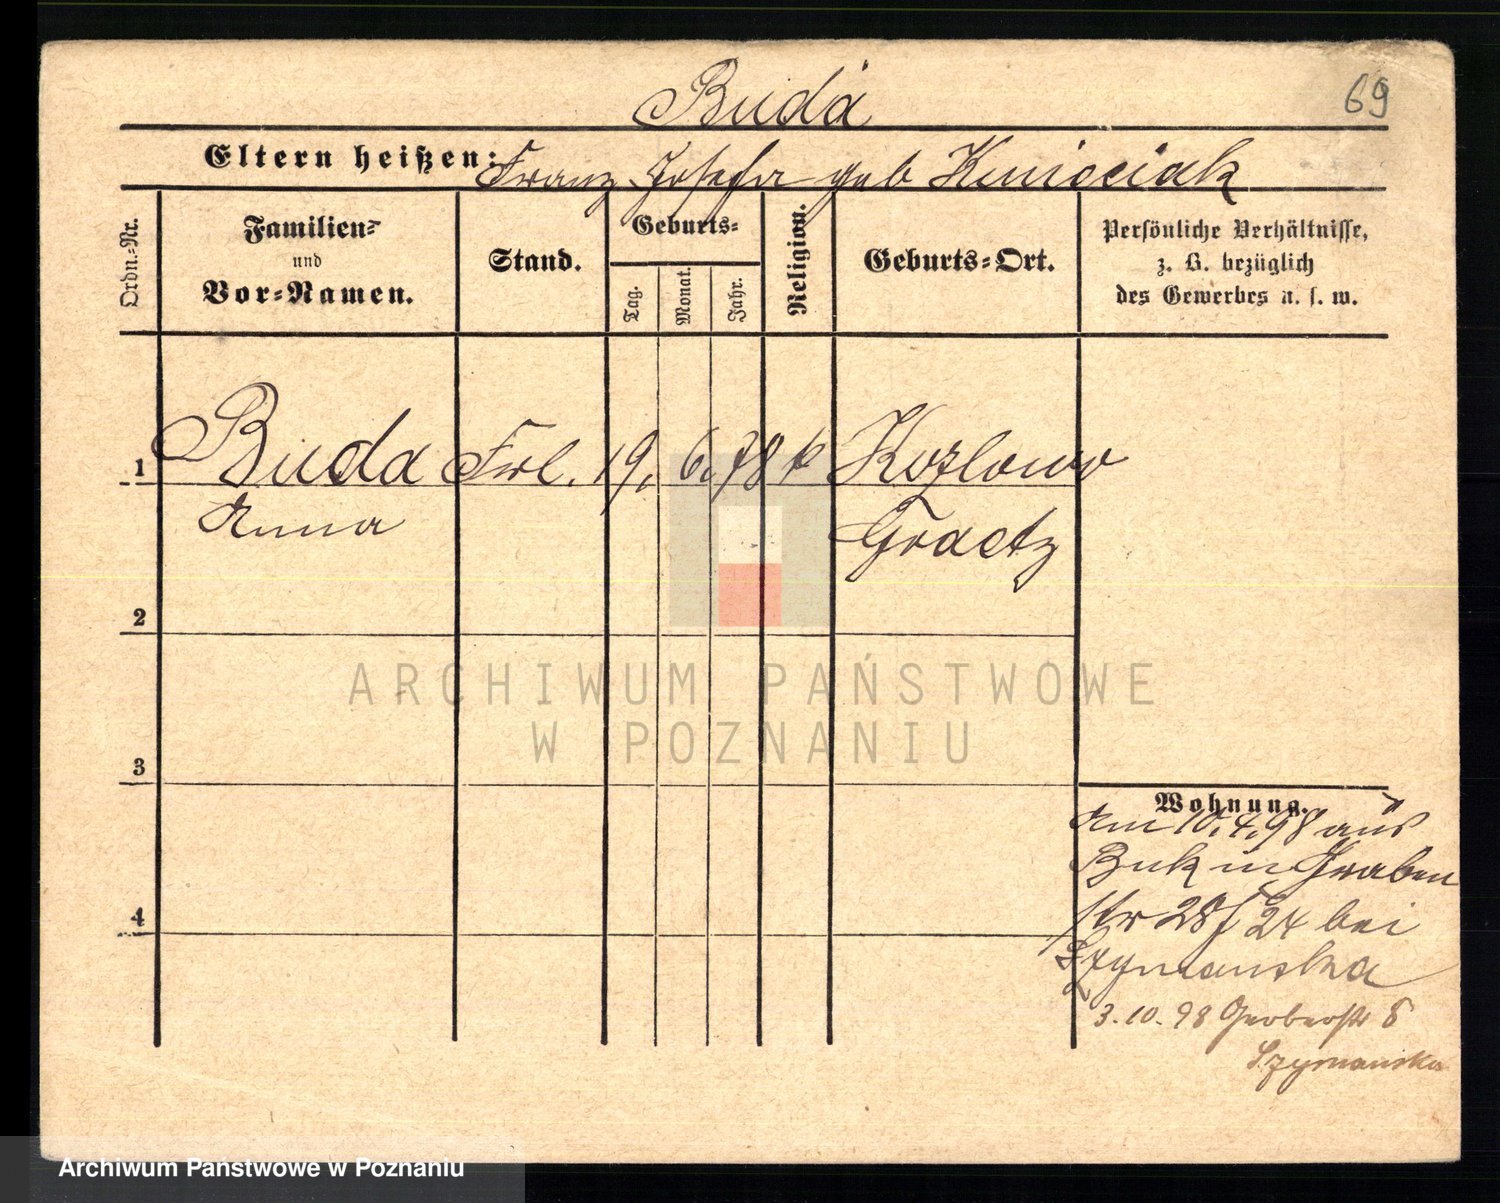 Buda
69
Eltern heißen: Franz Josefa geb Kuiociak
Ordn.-Nr.
Familien-
und
Vor-Namen.
Stand.
Geburts-
Tag.
Monat.
Jahr.
Religion.
Geburts-Ort.
Persönliche Verhältnisse,
z. B. bezüglich
des Gewerbes u. s. w.
1 Buda Frl. 19. 6. 78 k Kozlowo
Anna Graetz
2
3
4
ARCHIWUM PAŃSTWOWE
W POZNANIU
Wohnung.
Am 10.4.98 aus
Buk in Graben
str 28/24 bei
Szymanska
3.10.98 Gerberstr 8
Szymanska
Archiwum Państwowe w Poznaniu